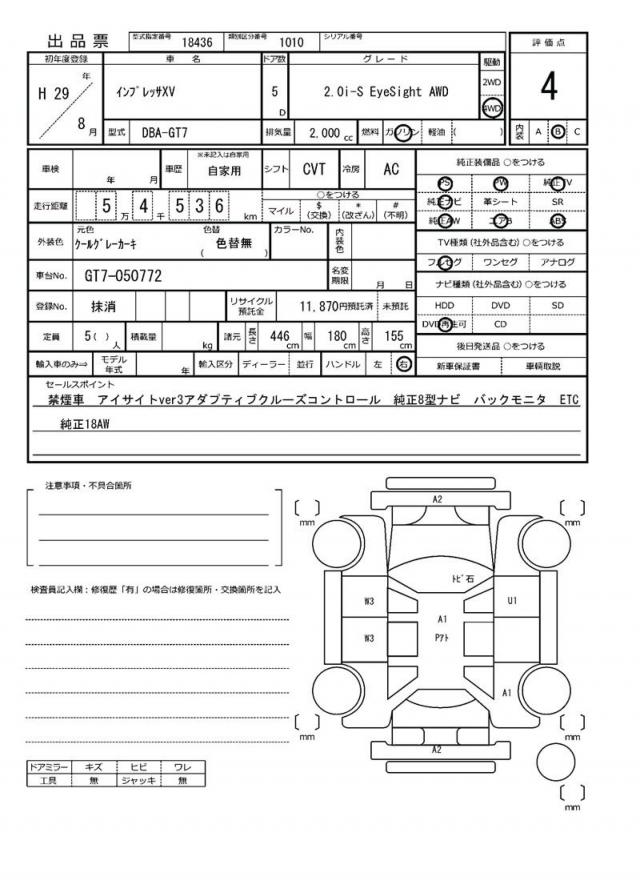 出品票 型式指定番号 18436 類別区分番号 1010 シリアル番号
初年度登録 車名 ドア数 グレード 駆動 評価点
H 29 年 8 月 インプレッサXV 5 D 2.0i-S EyeSight AWD 2WD 4WD 4
型式 DBA-GT7 排気量 2,000 cc 燃料 ガソリン 軽油 ( ) 内装 A B C
車検 年 月 車歴 ※未記入は自家用 自家用 シフト CVT 冷房 AC
走行距離 5 万 4 千 5 3 6 km
○をつける
マイル $(交換) *(改ざん) #(不明)
外装色 元色 クールグレーカーキ 色替 色替無 ( ) カラーNo. 内装色
車台No. GT7-050772 名変期限 月 日
登録No. 抹消 リサイクル預託金 11,870円預託済 未預託
定員 5( ) 人 積載量 kg 諸元 長さ 446 cm 幅 180 cm 高さ 155 cm
輸入車のみ⇒ モデル年式 年 輸入区分 ディーラー 並行 ハンドル 左 右
純正装備品 ○をつける
PS PW 純正TV
純正ナビ 革シート SR
純正AW エアB ABS
TV種類(社外品含む)○をつける
フルセグ ワンセグ アナログ
ナビ種類(社外品含む)○をつける
HDD DVD SD
DVD再生可 CD
後日発送品 ○をつける
新車保証書 車輌取説
セールスポイント
禁煙車 アイサイトver3アダプティブクルーズコントロール 純正8型ナビ バックモニタ ETC
純正18AW
注意事項・不具合箇所
検査員記入欄:修復歴「有」の場合は修復箇所・交換箇所を記入
ドアミラー キズ ヒビ ワレ
工具 無 ジャッキ 無
A2
mm mm
トビ石
W3 U1
A1
W3 Pアト
A1
mm mm
A2
mm